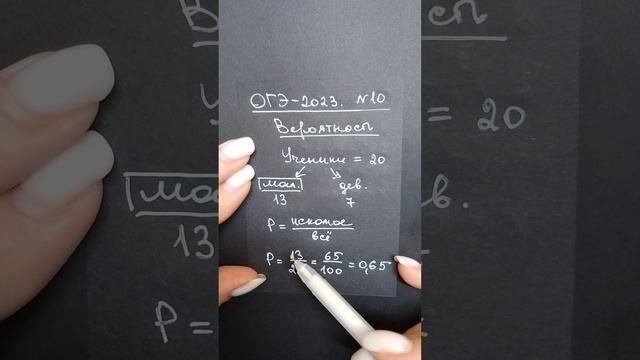 ОГЭ-2023. №10
Вероятность
Ученики = 20
мал. дев.
13 7
P = искомое / всё
P = 13/20 = 65/100 = 0,65